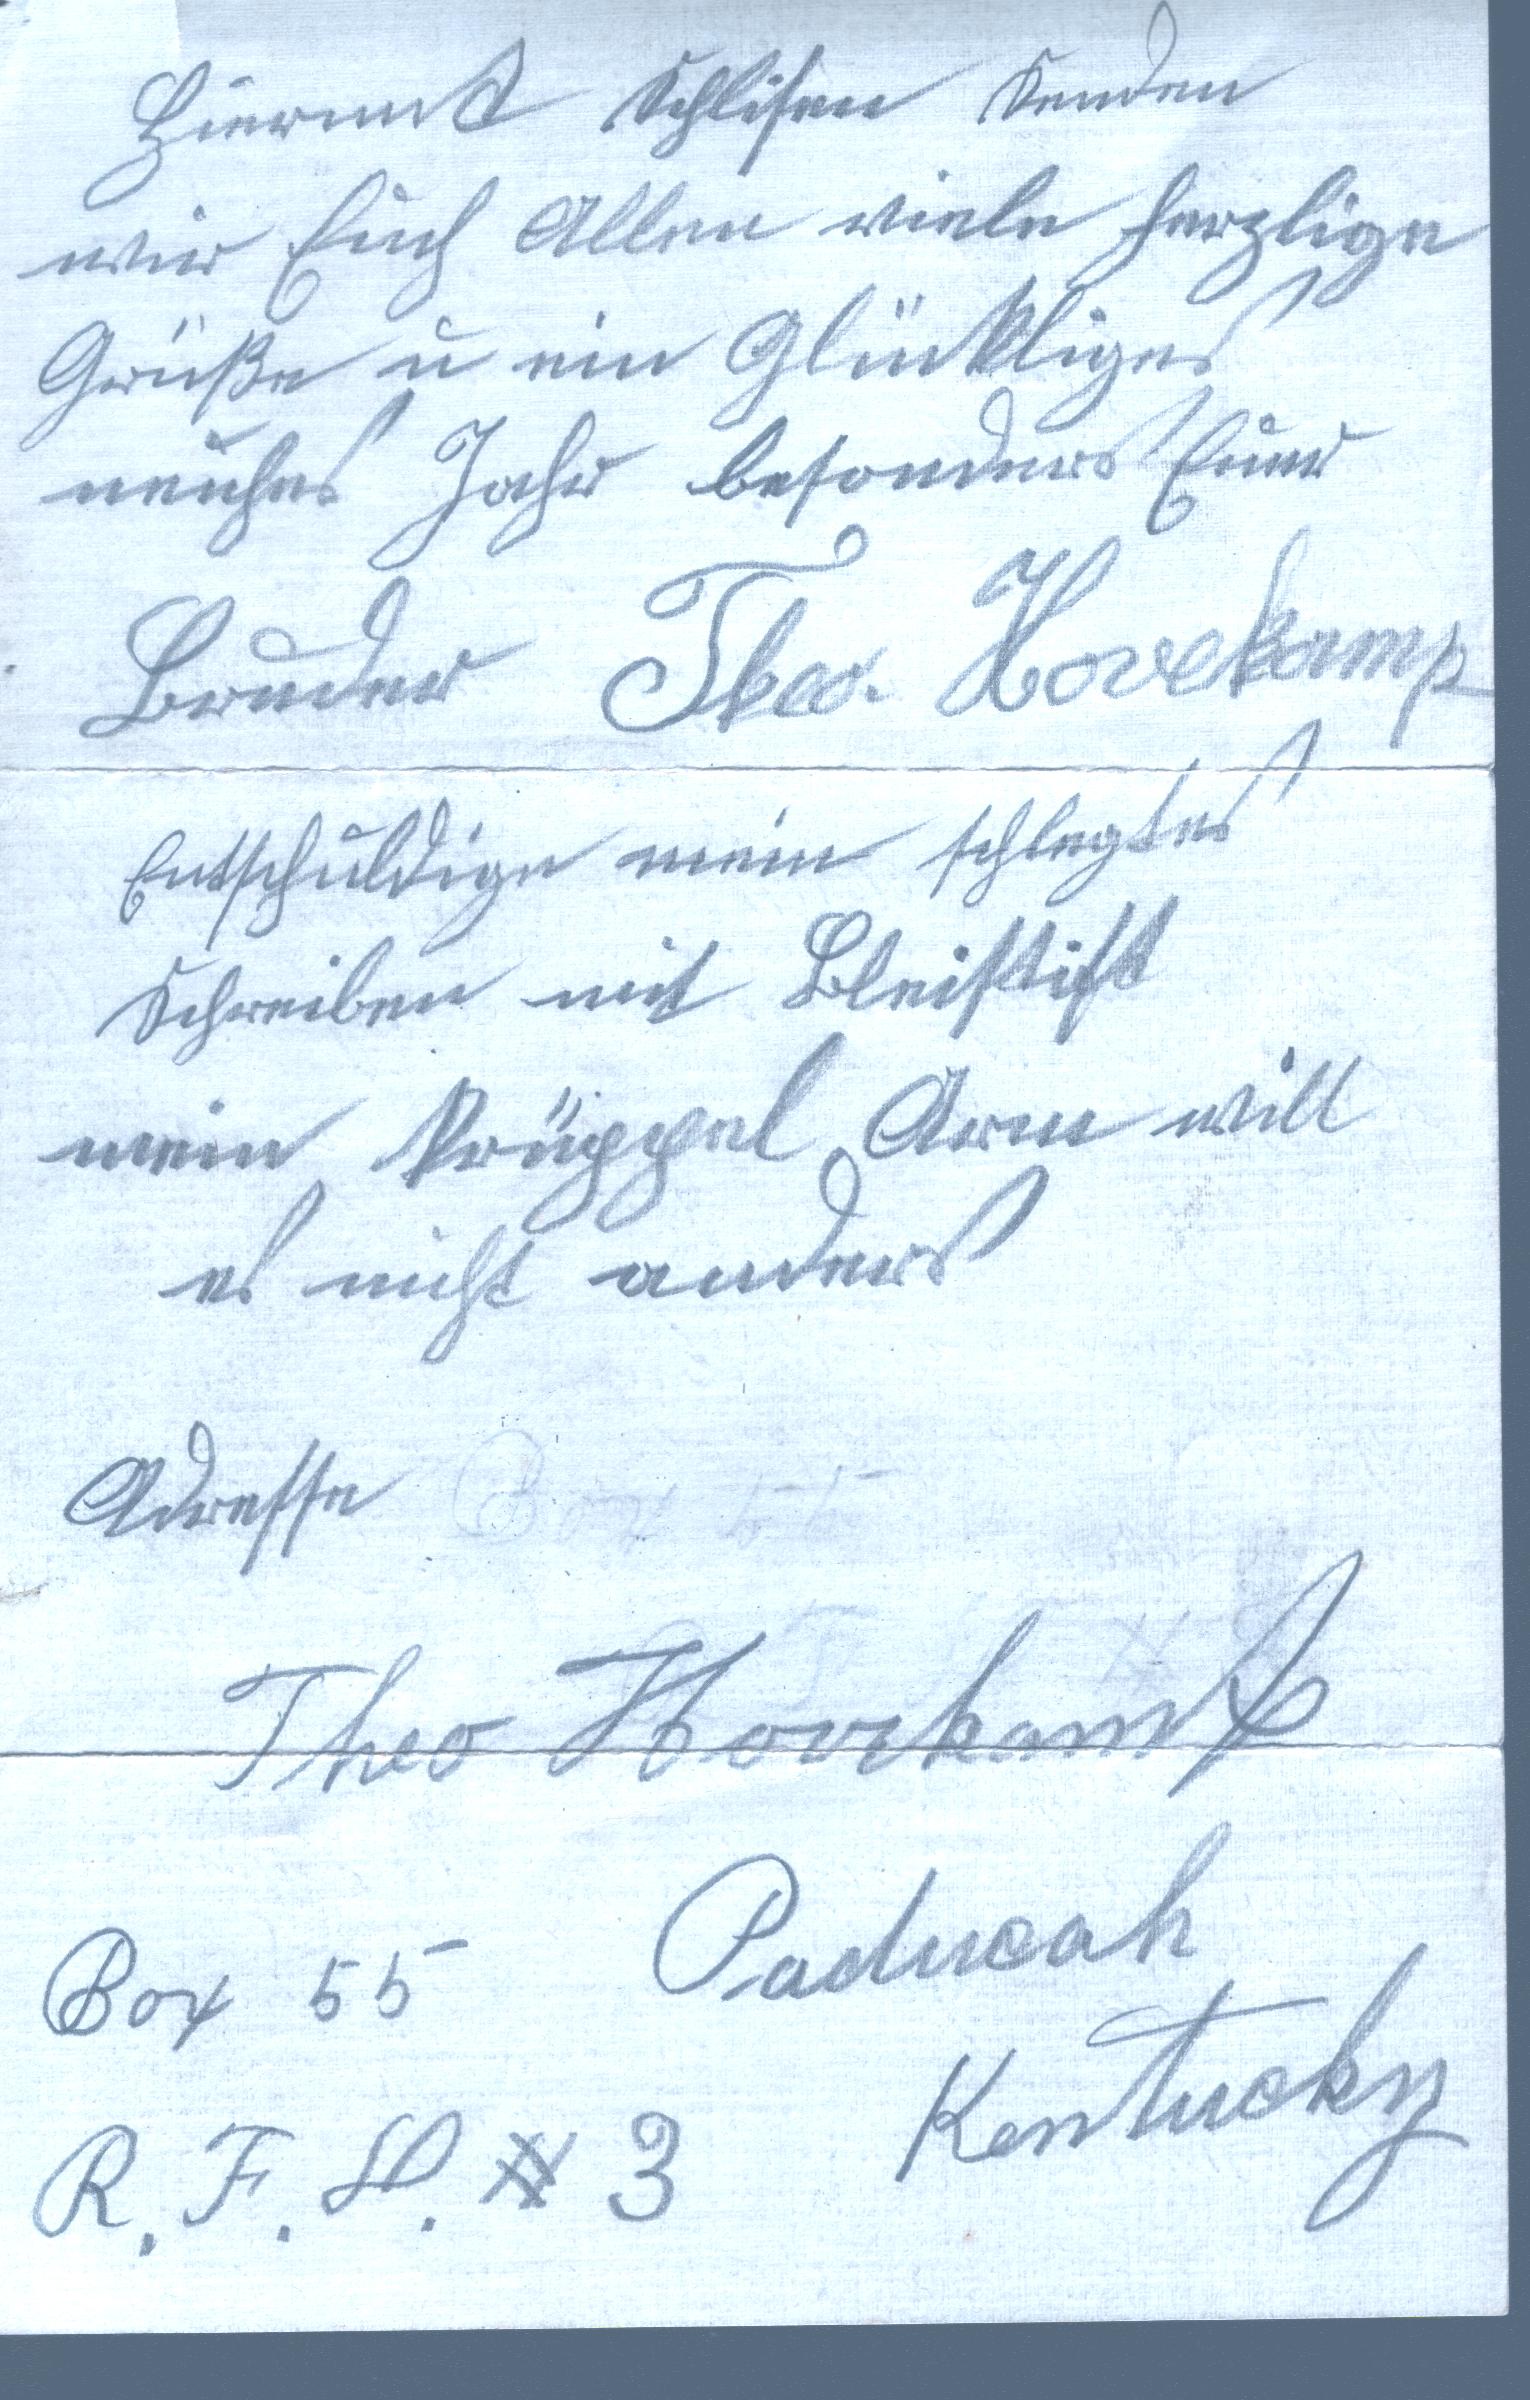 Hiermit Schlisen Senden
wir Euch Allen viele herzlige
Grüße u ein Glückliges
neuhes Jahr besonders Euer
Bruder Theo. Hovekamp
Entschuldige mein schlegtes
Schreiben mit Bleistift
mein Krüppel Arm will
es nicht anders
Adresse Box 55
Theo Hovekamp
Paducah
Box 55
Kentucky
R. F. D. # 3